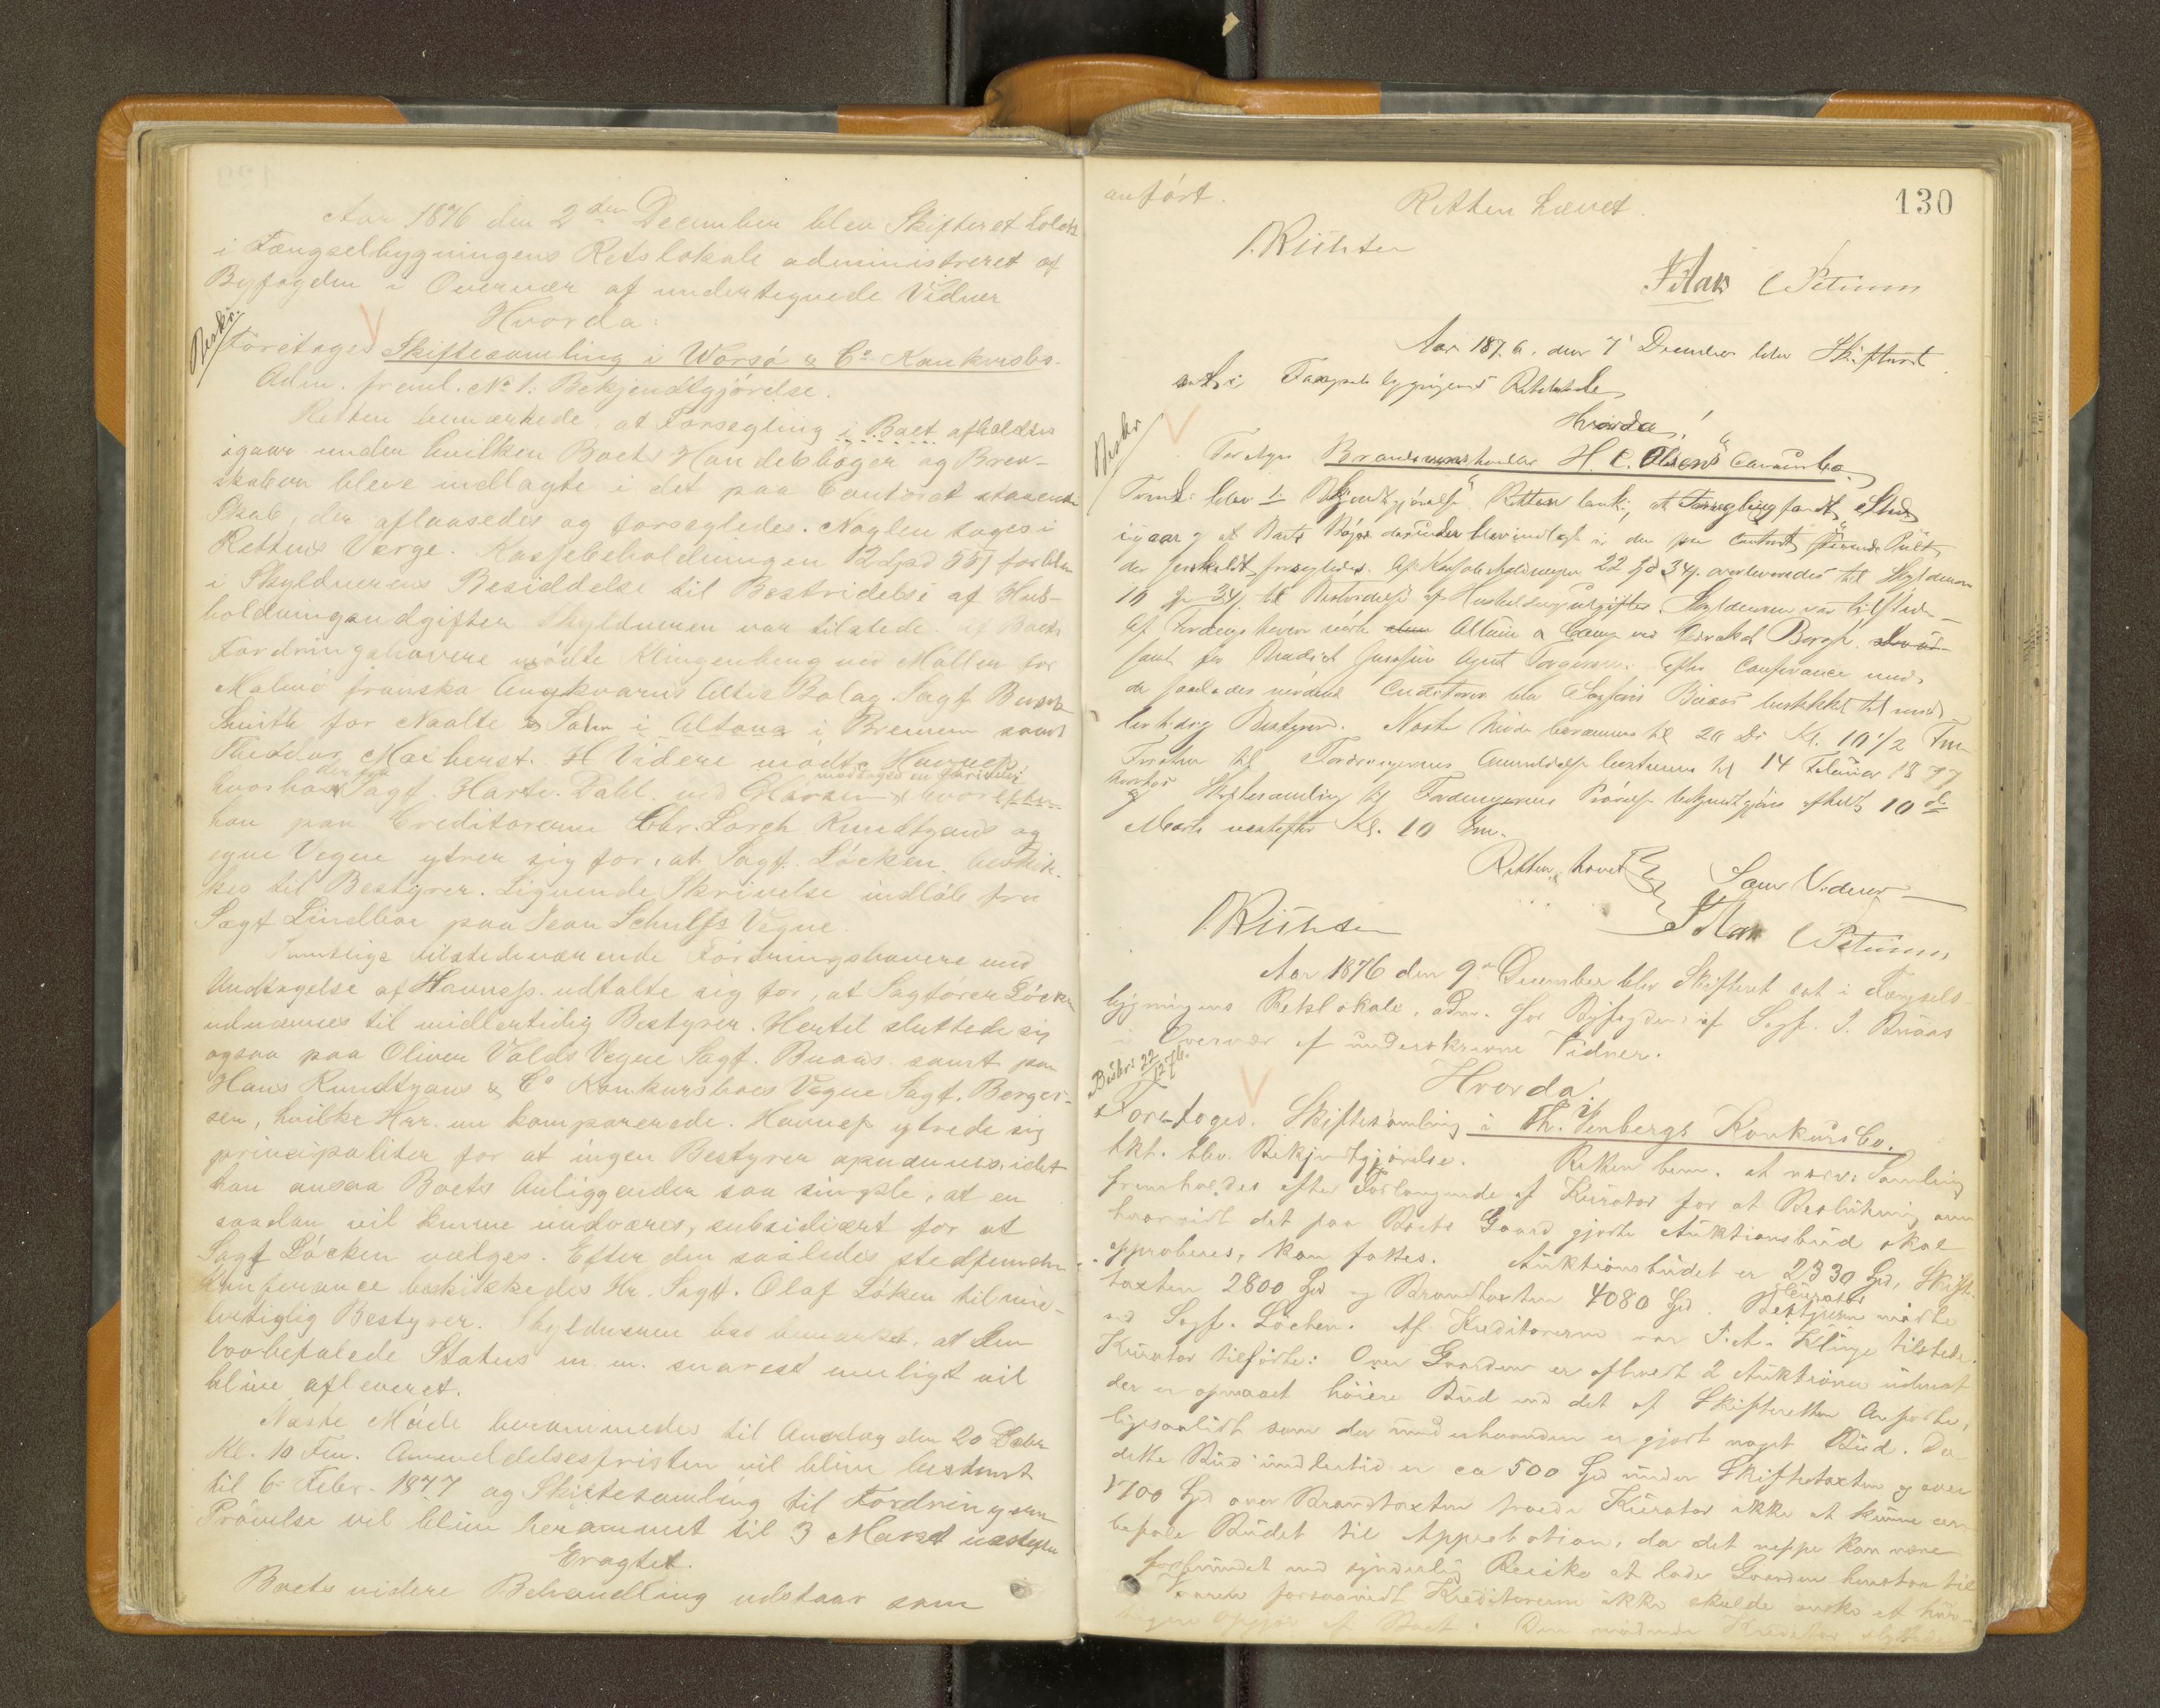 Aar 1876 den 2den December blev Skifteret holdt
i Fængselbygningens Retslokale administreret af
Byfogden i Overvær af undertegnede Vidner
Hvorda:
Beskr.
Foretoges Skiftesamling i Worsö & Co Konkursbo.
Adm. freml. No 1. Bekjendtgjörelse.
Retten bemærkede, at Forsegling i Boet afholdtes
igaar under hvilken Boets Handelsböger og Brev-
skaber bleve indlagte i det paa Contoret staaende
Skab, der aflaasedes og forsegledes. Nöglen toges i
Rettens Værge. Kassebeholdningen 12 Spd 55 forblev
i Skyldnerens Besiddelse til Bestridelse af Hus-
holdningsudgifter Skyldneren var tilstede. Af Boets
Fordringshavere mödte Klingenberg ved Möller for
Malmö franska Angkvarns Aktie Bolag. Sagf.
Smith for Naalte & Sohn i Altona i Bremen samt
Theodor. H Videre mödte Havnef.
Sagf. Harte. Dahl. ved hvorefter
han paa Creditorerne Chr. Lorch Knudtzons og
egne Vegne ytrer sig for, at Sagf. Löcken beskik-
kes til Bestyrer. Lignende Skrivelse indlöb fra
Sagf Lindboe paa Jean Schultzs Vegne.
Samtlige tilstedeværende Fordringshavere med
Undtagelse af Havnef. udtalte sig for, at Sagförer Löcken
udnævnes til midlertidig Bestyrer. Hertil sluttede sig
ogsaa paa Oliver Volds Vegne Sagf. Buaas samt paa
Hans Knudtzons & Co Konkursboes Vegne Sagf. Berger-
sen, hvilke Hrr. nu komparerede. Havnef ytrede sig
principaliter for at ingen Bestyrer opnævnes, idet
han ansaa Boets Anliggender saa simple, at en
saadan vil kunne undværes, subsidiært for at
Sagf Löcken vælges. Efter den saaledes stedfundne
Konferance beskikkedes Hr. Sagf. Olaf Löken til mid-
lertidig Bestyrer. Skyldneren bad bemærket, at den
lovbefalede Status m. m. snarest muligt vil
blive afleveret.
Næste Möde berammedes til Onsdag den 20 Decbr
Kl. 10 Fm. Anmeldelsesfristen vil blive bestemt
til 6. Febr. 1877 og Skiftesamling til Fordringernes
Prövelse vil blive berammet til 3 Marts næstefter
Eragtet.
Boets videre Behandling udstaar som
130
anfört. Retten hævet.
Aar 1876, den 7 December blev Skifteret
sat i Fængselsbygningens Retslokale
Hvorda!
Beskr
Foretoges Brændevinshandler H. C. Olsens Concursbo.
Freml. blev 1 Bekjendtgjörelse. Retten bem., at Forsegling fandt Sted
igaar og at Boets Böger derunder blev indlagt i den paa Contoret staaende Pult,
der forsegledes. Af Kassebeholdningen 22 Spd 34 overleveredes til Skyldneren
10 Spd 34 til Bestridelse af Husholdningsudgifter. Skyldneren var tilstede
Af Fordringshavere mödte ved Advokat Borch
samt for Agent Torgersen. Efter Conferance med
de saaledes mödende Creditorer blev Sagförer Buaas beskikket til mid-
lertidig Bestyrer. Næste Möde berammes til 20 Ds Kl. 10 1/2 Fm
Fristen til Fordringernes Anmeldelse bestemmes til 14 Februar 1877
hvorfor Skiftesamling til Fordringernes Prövelse bekjendtgjöres afholdt 10de
Marts næstefter Kl. 10 Fm.
Retten hævet Som Vidner
Aar 1876 den 9de December blev Skifteret sat i Fængsels-
bygningens Retslokale, adm. for Byfogden af Sagf. J. Buaas
i Overvær af underskrevne Vidner.
Beskr. 22/12 76.
Hvorda!
Foretoges. Skiftesamling i Th. Venbergs Konkursbo.
Bekjendtgjörelse. Retten bem. at nærv. Samling
fremholdes efter Forlangende af Kurator for at Beslutning om
hvorvidt det paa Boets Gaard gjorte Auktionsbud skal
approberes, kan fattes. Auktionsbudet er 2330 Spd, Skifte-
taxten 2800 Spd og Brandtaxten 4080 Spd. Kurator mödte
ved Sagf. Löchen. Af Kreditorerne var J. A. Klinge tilstede.
Kurator tilförte: Over Gaarden er afholdt 2 Auktioner uden at
der er opnaaet höiere Bud end det af Skifteretten Anförte,
ligesaalidt som der underhaanden er gjort noget Bud. Da
dette Bud imidlertid er ca 500 Spd under Skiftetaxten og over
1700 Spd under Brandtaxten troede Kurator ikke at kunne an-
befale Budet til Approbation, da det neppe kan være
forbundet med synderlig Resiko at lade Gaarden henstaa til
Vaaren forsaavidt Kreditorerne ikke skulde önske et hur-
tigere Opgjör af Boet. Den mödende Kreditor